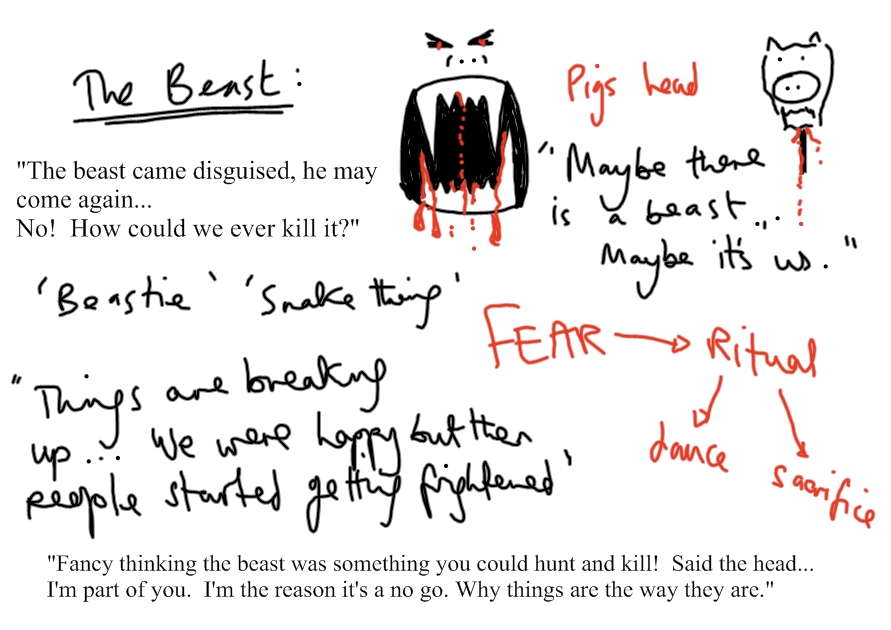 The Beast:
"The beast came disguised, he may
come again...
No!  How could we ever kill it?"
Pigs head
"Maybe there
is a beast....
Maybe it's us."
'Beastie' 'Snake thing'
FEAR → Ritual
dance
sacrifice
"Things are breaking
up... We were happy but then
people started getting frightened'
"Fancy thinking the beast was something you could hunt and kill!  Said the head...
I'm part of you.  I'm the reason it's a no go. Why things are the way they are."